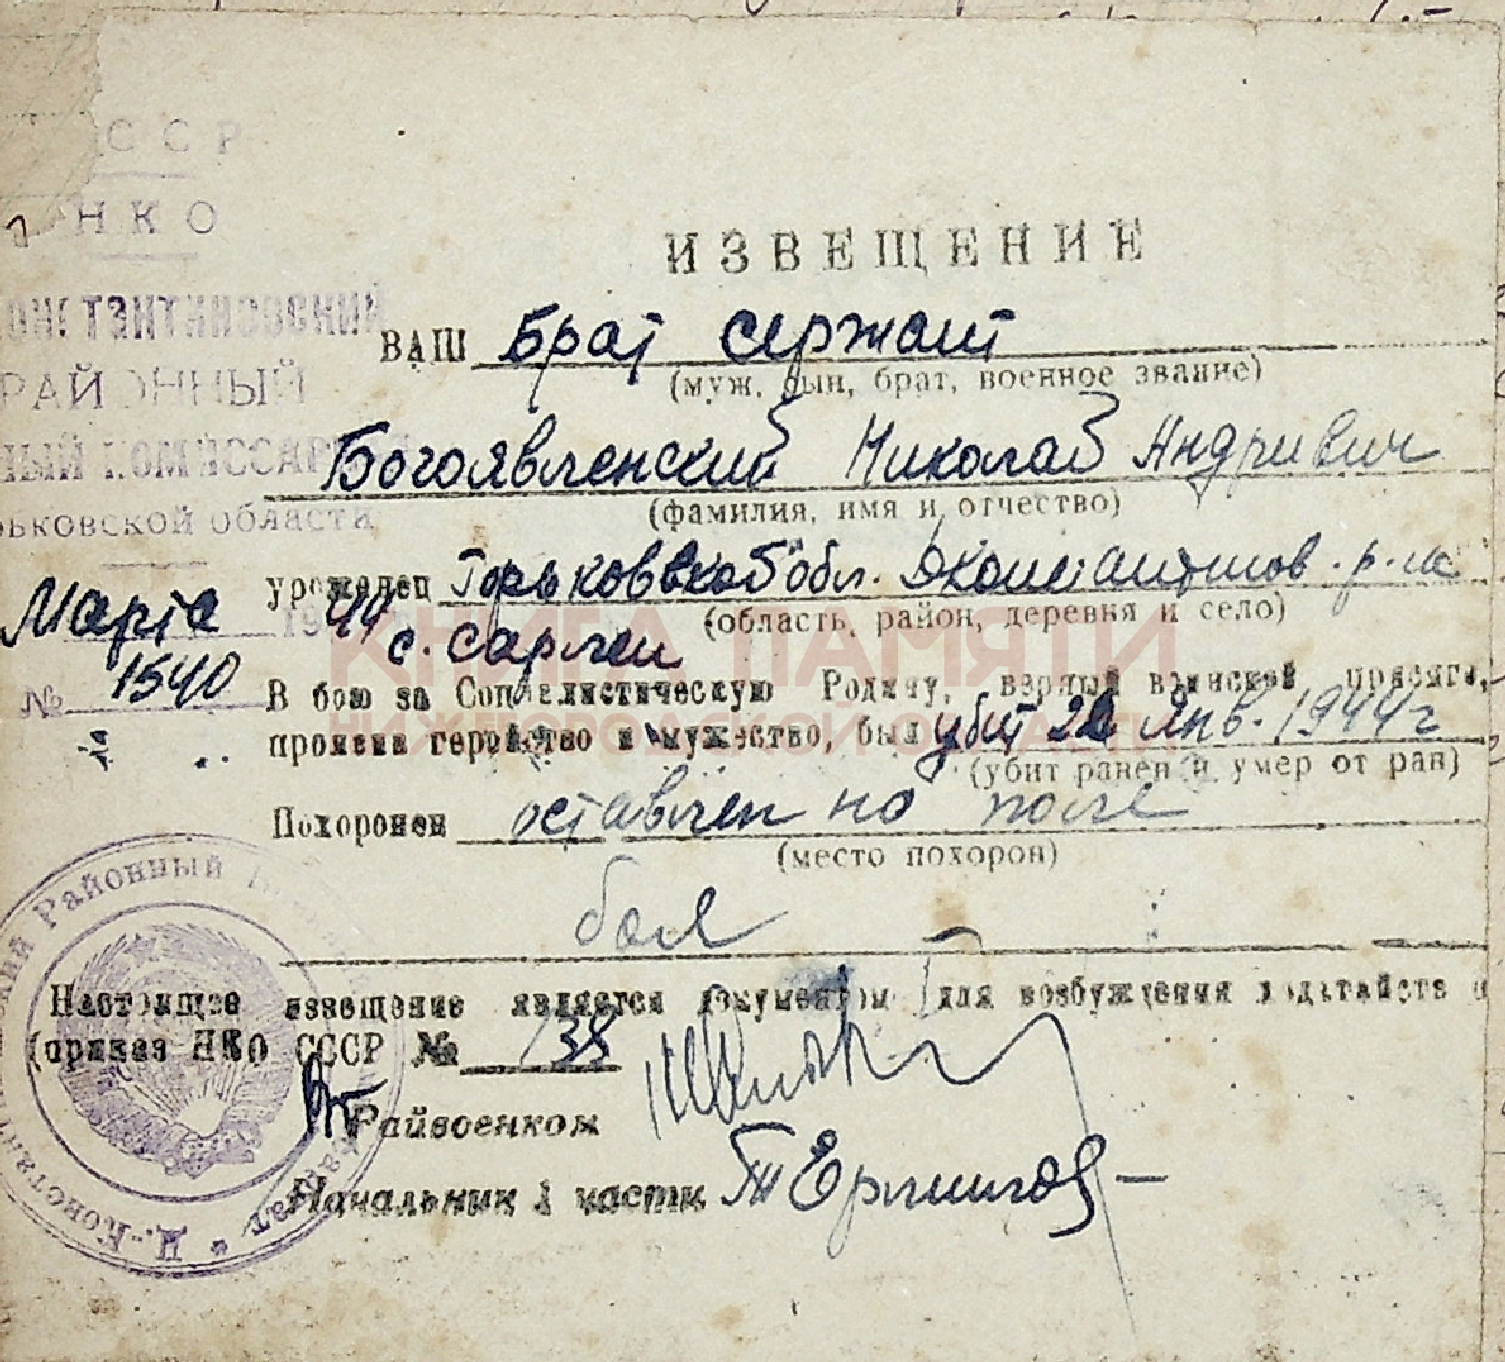 ССР
НКО
РАЙОННЫЙ
ЫЙ КОМИССАР
ьковской области
Марта 1944
№ 1540
ИЗВЕЩЕНИЕ
ВАШ Брат сержант
(муж, сын, брат, военное звание)
Богоявленский Николай Андриевич
(фамилия, имя и отчество)
уроженец Горьковской обл. Дконстантинов. р-на
(область, район, деревня и село)
с. Сарлеи
В бою за Социалистическую Родину, верный воинской присяге,
проявив геройство и мужество, был убит 22 Янв. 1944 г
(убит ранен и умер от ран)
Похоронен оставлен на поле
(место похорон)
боя
Настоящее извещение является документом для возбуждения ходатайств
(приказ НКО СССР № 138
Райвоенком
Начальник 1 части
Районный
Д.-Константин
КНИГА ПАМЯТИ
НИЖЕГОРОДСКОЙ ОБЛАСТИ